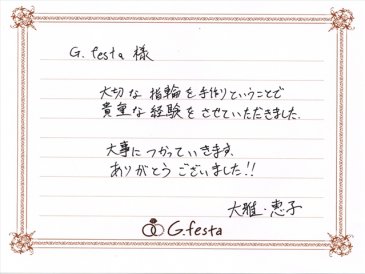 G.festa 様
大切な指輪を手作りということで
貴重な経験をさせていただきました。
大事につかっていきます。
ありがとうございました!!
大雅・恵子
G.festa